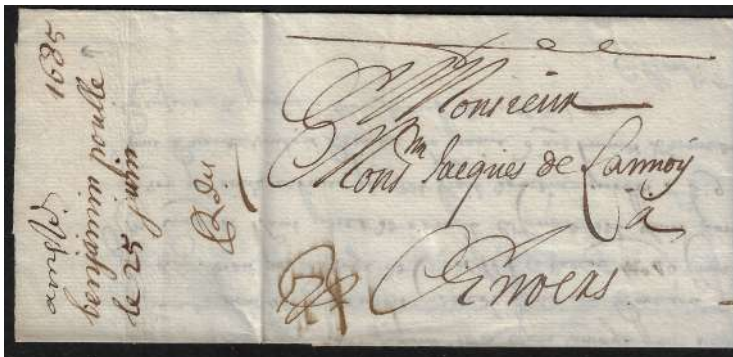 1685
benjamin poulle
le 25 juin
Monsieur
Mons.r Jacques de Lannoy
à
Anvers